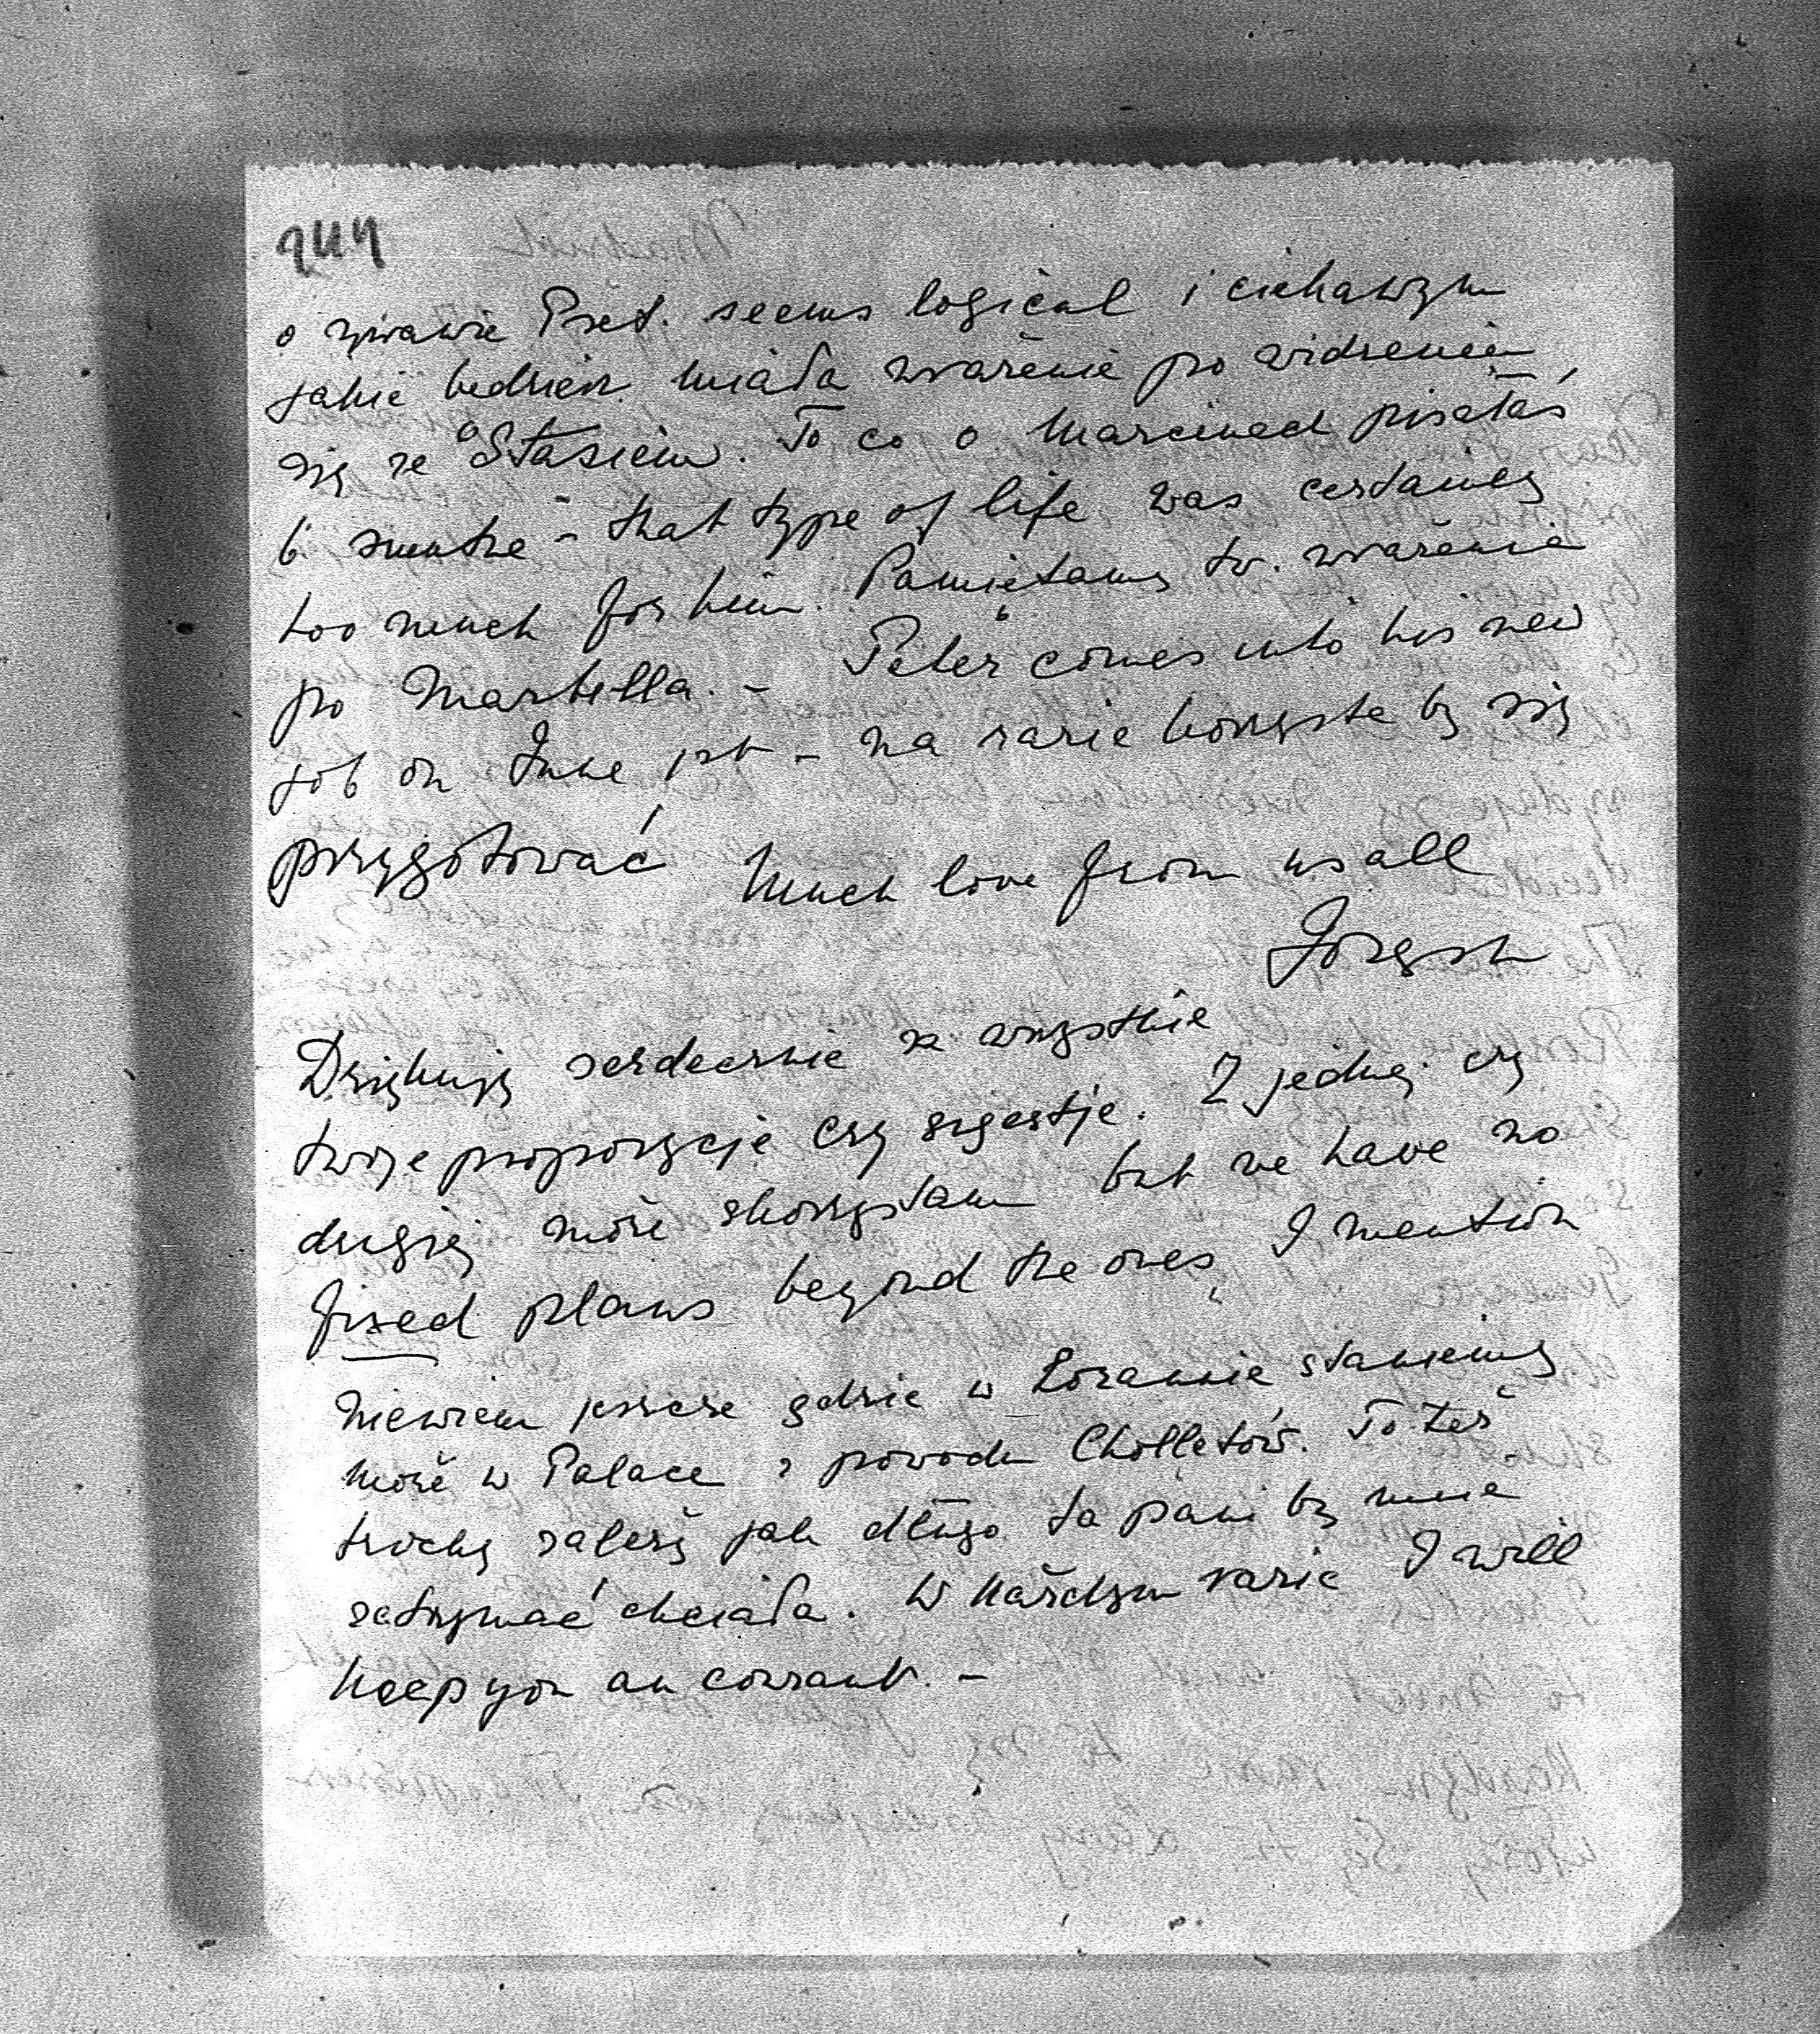 244
o sprawie Pret. seems logical i ciekawym
jakie będziesz miała wrażenie po widzeniu
się ze Stasiem. To co o Marcinach pisałaś
b smutne - that type of life was certainly
too much for him. Pamiętamy tw. wrażenie
po Marbella. - Peter comes into his new
job on June 1st - na razie korzysta by się
przygotować Much love from us all
Józych
Dziękuję serdecznie za wszystkie
twoje propozycje czy sugestje. Z jednej czy
drugiej może skorzystam but we have no
fixed plans beyond the ones I mention
Niewiem jeszcze gdzie w Lozannie staniemy
może w Palace z powodu Cholletów. To też
trochę zależy jak długo ta pani by mnie
zatrzymać chciała. W każdym razie I will
keep you au courant. -